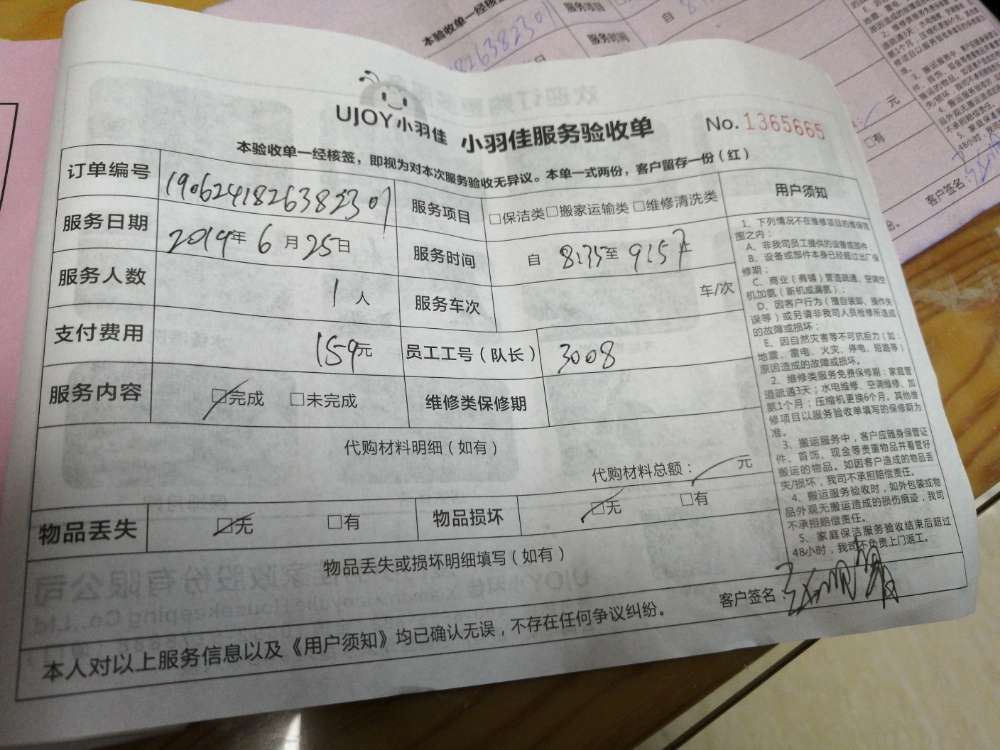 UJOY小羽佳 小羽佳服务验收单 No. 1365665
本验收单一经核签，即视为对本次服务验收无异议。本单一式两份，客户留存一份（红）
订单编号 19062418263823 01 服务项目 □保洁类□搬家运输类□维修清洗类
服务日期 2019年 6月 25日 服务时间 自 8:35至 9:57止
服务人数 1人 服务车次 车/次
支付费用 159元 员工工号（队长） 3008
服务内容 □完成 □未完成 维修类保修期
代购材料明细（如有）
代购材料总额： 元
物品丢失 □无 □有 物品损坏 □无 □有
物品丢失或损坏明细填写（如有）
客户签名：
本人对以上服务信息以及《用户须知》均已确认无误，不存在任何争议纠纷。
用户须知
1、下列情况不在维修项目的维保范
围之内：
A、非我司员工提供的设备或部件；
B、设备或部件本身已经超过出厂保
修期；
C、商业（商铺）管道疏通、空调空
机加氨（新机或漏氨）；
D、因客户行为（擅自装卸、操作失
误等）或另请非我司人员检修所造成
的故障或损坏；
E、因自然灾害等不可抗拒力（如：
地震、雷电、火灾、停电、短路等）
原因造成的故障或损坏。
2、维修类服务免费保修期：家庭管
道疏通3天；水电维修、空调维修、加
氨1个月；压缩机更换6个月。其他维
修项目以服务验收单填写的保修期为
准。
3、搬运服务中，客户应随身保管证
件、首饰、现金等贵重物品并看管好
搬运的物品。如因客户造成的物品丢
失/损坏，我司不承担赔偿责任。
4、搬运服务验收时，如外包装或物
品外观无搬运造成的损伤痕迹，我司
不承担赔偿责任。
5、家庭保洁服务验收结束后超过
48小时，我司不负责上门返工。
本验收单一经核
服务项目
服务时间
自
元
□有
客户签名：